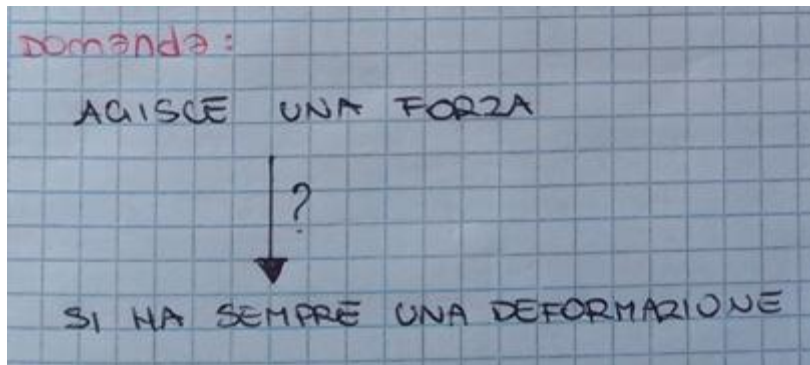 Domanda:
AGISCE UNA FORZA
?
SI HA SEMPRE UNA DEFORMAZIONE